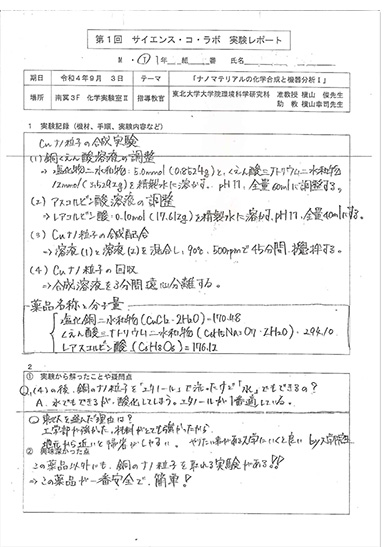 第1回 サイエンス・コ・ラボ 実験レポート
M・① 1年 組 番 氏名
期日 令和4年9月3日 テーマ 「ナノマテリアルの化学合成と機器分析Ⅰ」
場所 南冥3F 化学実験室Ⅱ 指導教官 東北大学大学院環境科学研究科 准教授 横山 俊先生
助教 横山幸司先生
1 実験記録(機材、手順、実験内容など)
Cuナノ粒子の合成実験
(1) 銅くえん酸溶液の調整
⇒ 塩化物二水和物:5.0mmol (0.8524g)と、くえん酸三ナトリウム二水和物
12mmol(3.5292g)を精製水に溶かす。pH11, 全量60mlに調整する。
(2) アスコルビン酸溶液の調整
⇒ Lアスコルビン酸:0.10mol (17.612g)を精製水に溶かす。pH11, 全量40mlにする。
(3) Cuナノ粒子の合成配合
⇒ 溶液(1)と溶液(2)を混合し、90℃, 500rpmで45分間、攪拌する。
(4) Cuナノ粒子の回収
⇒ 合成溶液を3分間遠心分離する。
薬品名称と分子量
塩化銅二水和物 (CuCl2・2H2O)=170.48
くえん酸三ナトリウム二水和物 (C6H5Na3O7・2H2O)=294.10
Lアスコルビン酸 (C6H8O6)=176.12
2
① 実験から解ったことや疑問点
Q,(4)の後、銅のナノ粒子を「エタノール」で洗ったけど「水」でもできるの?
A. 水でもできるが、酸化してしまう。エタノールが1番適している。
Q 東北大を選んだ理由は?
工学部が強かった。材料がとても強かったから
地元から近いと帰省がしやすい。 やりたい事がある大学にいくと良い by大学院生
② 興味深かった点
この薬品以外にも、銅のナノ粒子を取れる実験がある!!
⇒この薬品が一番安全で、簡単!